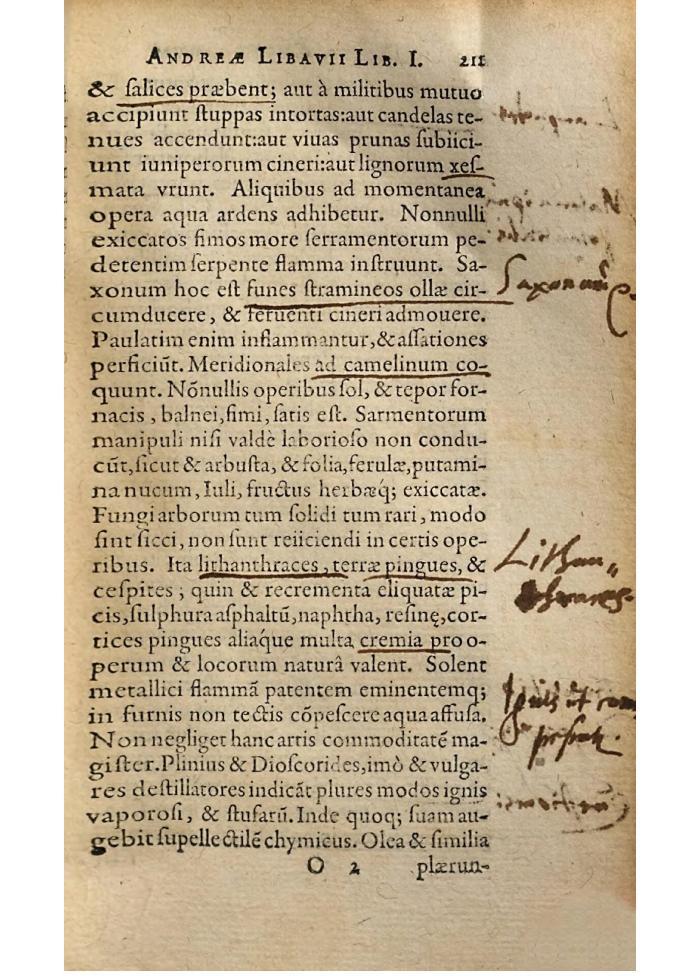 ANDREÆ LIBAVII LIB. I. 211
& ſalices præbent; aut à militibus mutuo
accipiunt ſtuppas intortas:aut candelas te-
nues accendunt:aut viuas prunas ſubiici-
unt iuniperorum cineri:aut lignorum xeſ-
mata vrunt. Aliquibus ad momentanea
opera aqua ardens adhibetur. Nonnulli
exiccatos fimos more ferramentorum pe-
detentim ſerpente flamma inſtruunt. Sa-
xonum hoc eſt funes ſtramineos ollæ cir-
Saxonum
cumducere, & feruenti cineri admouere.
Paulatim enim inflammantur,& aſſationes
perficiūt. Meridionales ad camelinum co-
quunt. Nōnullis operibus ſol, & tepor for-
nacis, balnei, fimi, ſatis eſt. Sarmentorum
manipuli niſi valdè laborioſo non condu-
cūt, ſicut & arbuſta, & folia, ferulæ, putami-
na nucum, Iuli, fructus herbæq́; exiccatæ.
Fungi arborum tum ſolidi tum rari, modo
ſint ſicci, non ſunt reiiciendi in certis ope-
ribus. Ita lithanthraces, terræ pingues, &
Lithan„
thraces
ceſpites; quin & recrementa eliquatæ pi-
cis, ſulphura aſphaltū, naphtha, reſinę, cor-
tices pingues aliaq́ue multa cremia pro o-
perum & locorum naturâ valent. Solent
metallici flammā patentem eminentemq;
in furnis non tectis cōpeſcere aqua affuſa.
Non negliget hanc artis commoditatē ma-
giſter. Plinius & Dioſcorides, imò & vulga-
res deſtillatores indicāt plures modos ignis
vaporoſi, & ſtufarū. Inde quoq; ſuam au-
gebit ſupellectilē chymicus. Olea & ſimilia
O 2 plærun-